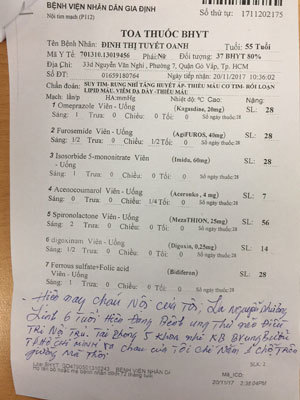 BỆNH VIỆN NHÂN DÂN GIA ĐỊNH
Nội tim mạch (P112)
Số thứ tự: 1711202175
TOA THUỐC BHYT
Tên Bệnh Nhân: ĐINH THỊ TUYẾT OANH Tuổi: 55 Tuổi
Mã Y Tế 701310.13019456 Phái: Nữ Đối tượng: 37 BHYT 80%
Địa Chỉ: 33d Nguyễn Văn Nghi, Phường 7, Quận Gò Vấp, Tp. HCM
Số ĐT: 01659180764 Ngày tiếp nhận: 20/11/2017 10:36:02
Chẩn đoán: SUY TIM- RUNG NHĨ TĂNG HUYẾT ÁP- THIẾU MÁU CƠ TIM- RỐI LOẠN
LIPID MÁU. VIÊM DẠ DÀY -THIẾU MÁU
Mạch: lần/p HA: mmHg Nhiệt độ: °C Cao:
1 Omeprazole Viên - Uống (Kagasdine, 20mg) SL: 28
Sáng: 1 Trưa: 0 Chiều: 0 Tối: 0 Số ngày thuốc: 28
2 Furosemide Viên - Uống (AgiFUROS, 40mg) SL: 28
Sáng: 1/2 Trưa: 0 Chiều: 1/2 Tối: 0 Số ngày thuốc: 28
3 Isosorbide 5-mononitrate Viên - (Imidu, 60mg) SL: 28
Uống
4 Acenocoumarol Viên - Uống (Acerenko, 4 mg) SL: 7
Sáng: 0 Trưa: 0 Chiều: Tối: 0 Số ngày thuốc: 28
5 Spironolactone Viên - Uống (MezaTHION, 25mg) SL: 56
Sáng: 2 Trưa: 0 Chiều: 0 Tối: 0 Số ngày thuốc: 28
6 digoxinum Viên - Uống (Digoxin, 0,25mg) SL: 14
Sáng: 1/2 Trưa: 0 Chiều: 0 Tối: 0 Số ngày thuốc: 28
7 Ferrous sulfate+Folic acid (Bidiferon) SL: 28
Viên - Uống
- Hiện nay cháu Nội của Tôi, La Nguyễn
6 tuổi Hiện Đang Bệnh ung Thư não Điều
Trị Nội Trú. Tại Phòng 5 Khoa nhi BV ung Bướu
TPHồ CHÍ MINH cháu của Tôi Chỉ Nằm 1 Chỗ Trên
giường Mà Thôi
Mã_ICD:
20/11/17 2:38:04PM